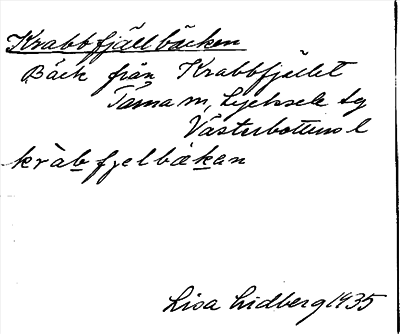 Krabbfjällbäcken
Bäck från Krabbfjället
Tärna sn, Lycksele lg
Västerbottens l
kràbfjelbäkan
Lisa Lidberg 1935